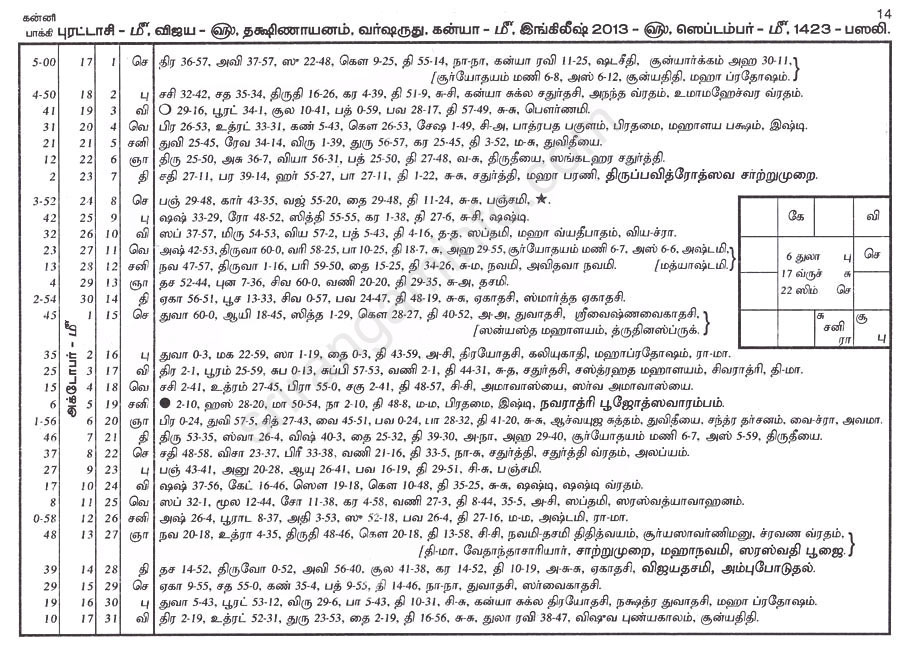 கன்னி 14
பாக்கி புரட்டாசி - மீ, விஜய - ௵, தக்ஷிணாயனம், வர்ஷருது, கன்யா - மீ, இங்கிலீஷ் 2013 - ௵, ஸெப்டம்பர் - மீ, 1423 - பஸலி.
5-00 17 1 செ திர 36-57, அவி 37-57, ஸு 22-48, கௌ 9-25, தி 55-14, நா-நா, கன்யா ரவி 11-25, ஷடசீதி, சூன்யார்க்கம் அஹ 30-11,
[சூர்யோதயம் மணி 6-8, அஸ் 6-12, சூன்யதிதி, மஹா ப்ரதோஷம்.
4-50 18 2 பு சசி 32-42, சத 35-34, திருதி 16-26, கர 4-39, தி 51-9, சு-சி, கன்யா சுக்ல சதுர்தசி, அநந்த வ்ரதம், உமாமஹேச்வர வ்ரதம்.
41 19 3 வி 29-16, பூரட் 34-1, சூல 10-41, பத் 0-59, பவ 28-17, தி 57-49, சு-சு, பௌர்ணமி.
31 20 4 வெ பிர 26-53, உத்ரட் 33-31, கண் 5-43, கௌ 26-53, சேஷ 1-49, சி-அ, பாத்ரபத பகுளம், பிரதமை, மஹாளய பக்ஷம், இஷ்டி.
21 21 5 சனி துவி 25-45, ரேவ 34-14, விரு 1-39, துரு 56-57, கர 25-45, தி 3-52, ம-சு, துவிதீயை.
12 22 6 ஞா திரு 25-50, அசு 36-7, வியா 56-31, பத் 25-50, தி 27-48, வ-சு, திருதீயை, ஸங்கடஹர சதுர்த்தி.
2 23 7 தி சதி 27-11, பர 39-14, ஹர் 55-27, பா 27-11, தி 1-22, சு-சு, சதுர்த்தி, மஹா பரணி, திருப்பவித்ரோத்ஸவ சாற்றுமுறை.
3-52 24 8 செ பஞ் 29-48, கார் 43-35, வஜ் 55-20, தை 29-48, தி 11-24, சு-சு, பஞ்சமி, ★.
42 25 9 பு ஷஷ் 33-29, ரோ 48-52, ஸித்தி 55-55, கர 1-38, தி 27-6, சு-சி, ஷஷ்டி.
32 26 10 வி ஸப் 37-57, மிரு 54-53, விய 57-2, பத் 5-43, தி 4-16, த-த. ஸப்தமி, மஹா வ்யதீபாதம், விய-ச்ரா.
23 27 11 வெ அஷ் 42-53, திருவா 60-0, வரி 58-25, பா 10-25, தி 18-7, சு-அ, அஹ 29-55, சூர்யோதயம் மணி 6-7, அஸ் 6-6, அஷ்டமி,
13 28 12 சனி நவ 47-57, திருவா 1-16, பரி 59-50, தை 15-25, தி 34-26, சு-ம, நவமி, அவிதவா நவமி. [மத்யாஷ்டமி.
4 29 13 ஞா தச 52-44, புன 7-36, சிவ 60-0, வணி 20-20, தி 29-35, சு-அ, தசமி.
2-54 30 14 தி ஏகா 56-51, பூச 13-33, சிவ 0-57, பவ 24-47, தி 48-19, சு-சு, ஏகாதசி, ஸ்மார்த்த ஏகாதசி.
45 1 15 செ துவா 60-0, ஆயி 18-45, ஸித்த 1-29, கௌ 28-27, தி 40-52, அ-அ, துவாதசி, ஸ்ரீவைஷ்ணவைகாதசி,
[ஸன்யஸ்த மஹாளயம், த்ருதினஸ்ப்ருக்.
அக்டோபர் - மீ
35 2 16 பு துவா 0-3, மக 22-59, ஸா 1-19, தை 0-3, தி 43-59, அ-சி, திரயோதசி, கலியுகாதி, மஹாப்ரதோஷம், ரா-மா.
25 3 17 வி திர 2-1, பூரம் 25-59, சுப 0-13, சுப்பி 57-53, வணி 2-1, தி 44-31, சு-த, சதுர்தசி, சஸ்த்ரஹத மஹாளயம், சிவராத்ரி, தி-மா.
15 4 18 வெ சசி 2-41, உத்ரம் 27-45, பிரா 55-0, சகு 2-41, தி 48-57, சி-சி, அமாவாஸ்யை, ஸர்வ அமாவாஸ்யை.
6 5 19 சனி ● 2-10, ஹஸ் 28-20, மா 50-54, நா 2-10, தி 48-8, ம-ம, பிரதமை, இஷ்டி, நவராத்ரி பூஜோத்ஸவாரம்பம்.
1-56 6 20 ஞா பிர 0-24, துவி 57-5, சித் 27-43, வை 45-51, பவ 0-24, பா 28-32, தி 41-20, சு-சு, ஆச்வயுஜ சுத்தம், துவிதீயை, சந்த்ர தர்சனம், வை-ச்ரா, அவமா.
46 7 21 தி திரு 53-35, ஸ்வா 26-4, விஷ் 40-3, தை 25-32, தி 39-30, அ-நா, அஹ 29-40, சூர்யோதயம் மணி 6-7, அஸ் 5-59, திருதீயை.
37 8 22 செ சதி 48-58, விசா 23-37, பிரீ 33-38, வணி 21-16, தி 33-5, நா-சு, சதுர்த்தி, சதுர்த்தி வ்ரதம், அலப்யம்.
27 9 23 பு பஞ் 43-41, அனு 20-28, ஆயு 26-41, பவ 16-19, தி 29-51, சி-சு, பஞ்சமி.
17 10 24 வி ஷஷ் 37-56, கேட் 16-46, ஸௌ 19-18, கௌ 10-48, தி 35-25, சு-சு, ஷஷ்டி, ஷஷ்டி வ்ரதம்.
8 11 25 வெ ஸப் 32-1, மூல 12-44, சோ 11-38, கர 4-58, வணி 27-3, தி 8-44, 35-5, அ-சி, ஸப்தமி, ஸரஸ்வத்யாவாஹனம்.
0-58 12 26 சனி அஷ் 26-4, பூராட 8-37, அதி 3-53, ஸு 52-18, பவ 26-4, தி 27-16, ம-ம, அஷ்டமி, ரா-மா.
48 13 27 ஞா நவ 20-18, உத்ரா 4-35, திருதி 48-46, கௌ 20-18, தி 13-58, சி-சி, நவமி-தசமி திதித்வயம், சூர்யஸாவர்ணிமனு, ச்ரவண வ்ரதம்,
[தி-மா, வேதாந்தாசாரியார், சாற்றுமுறை, மஹாநவமி, ஸரஸ்வதி பூஜை.
39 14 28 தி தச 14-52, திருவோ 0-52, அவி 56-40, சூல 41-38, கர 14-52, தி 10-19, அ-சு-சு, ஏகாதசி, விஜயதசமி, அம்புபோடுதல்.
29 15 29 செ ஏகா 9-55, சத 55-0, கண் 35-4, பத் 9-55, தி 14-46, நா-நா, துவாதசி, ஸர்வைகாதசி.
19 16 30 பு துவா 5-43, பூரட் 53-12, விரு 29-6, பா 5-43, தி 10-31, சி-சு, கன்யா சுக்ல திரயோதசி, நக்ஷத்ர துவாதசி, மஹா ப்ரதோஷம்.
10 17 31 வி திர 2-19, உத்ரட் 52-31, துரு 23-53, தை 2-19, தி 16-56, சு-சு, துலா ரவி 38-47, விஷுவ புண்யகாலம், சூன்யதிதி.
கே வி
6 துலா பு செ
17 வ்ருச் சு
22 ஸிம் செ
சு சூ
சனி பு
ரா